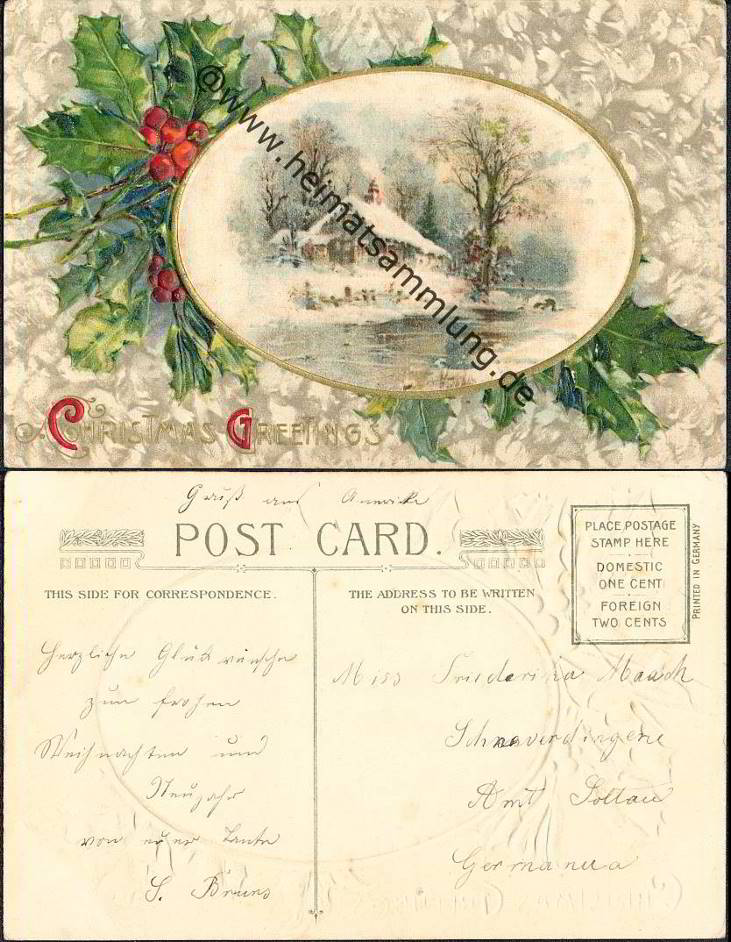 @www.heimatsammlung.de
Christmas Greetings
Gruß aus Amerika
POST CARD.
PLACE POSTAGE
STAMP HERE
DOMESTIC
ONE CENT
FOREIGN
TWO CENTS
PRINTED IN GERMANY
THIS SIDE FOR CORRESPONDENCE.
THE ADDRESS TO BE WRITTEN
ON THIS SIDE.
Herzliche Glückwünsche
zum frohen
Weihnachten und
Neujahr
von eurer Tante
S. Bruns
Miss Friederika Maach
Schneverdingene
Amt Soltau
Germanua